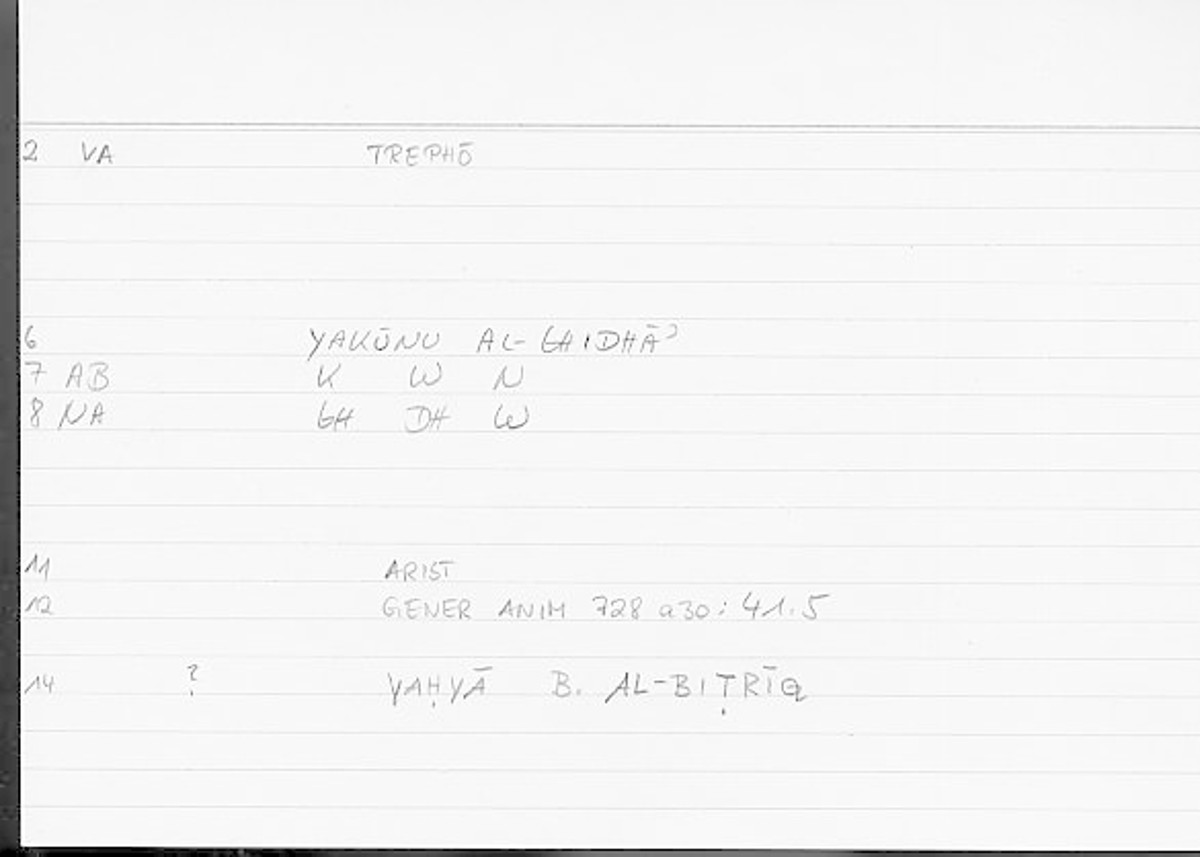 2 VA TREPHŌ
6 YAKŪNU AL-GHIDHĀʾ
7 AB K W N
8 NA GH DH W
11 ARIST
12 GENER ANIM 728 a30: 41.5
14 ? YAḤYĀ B. AL-BIṬRĪQ